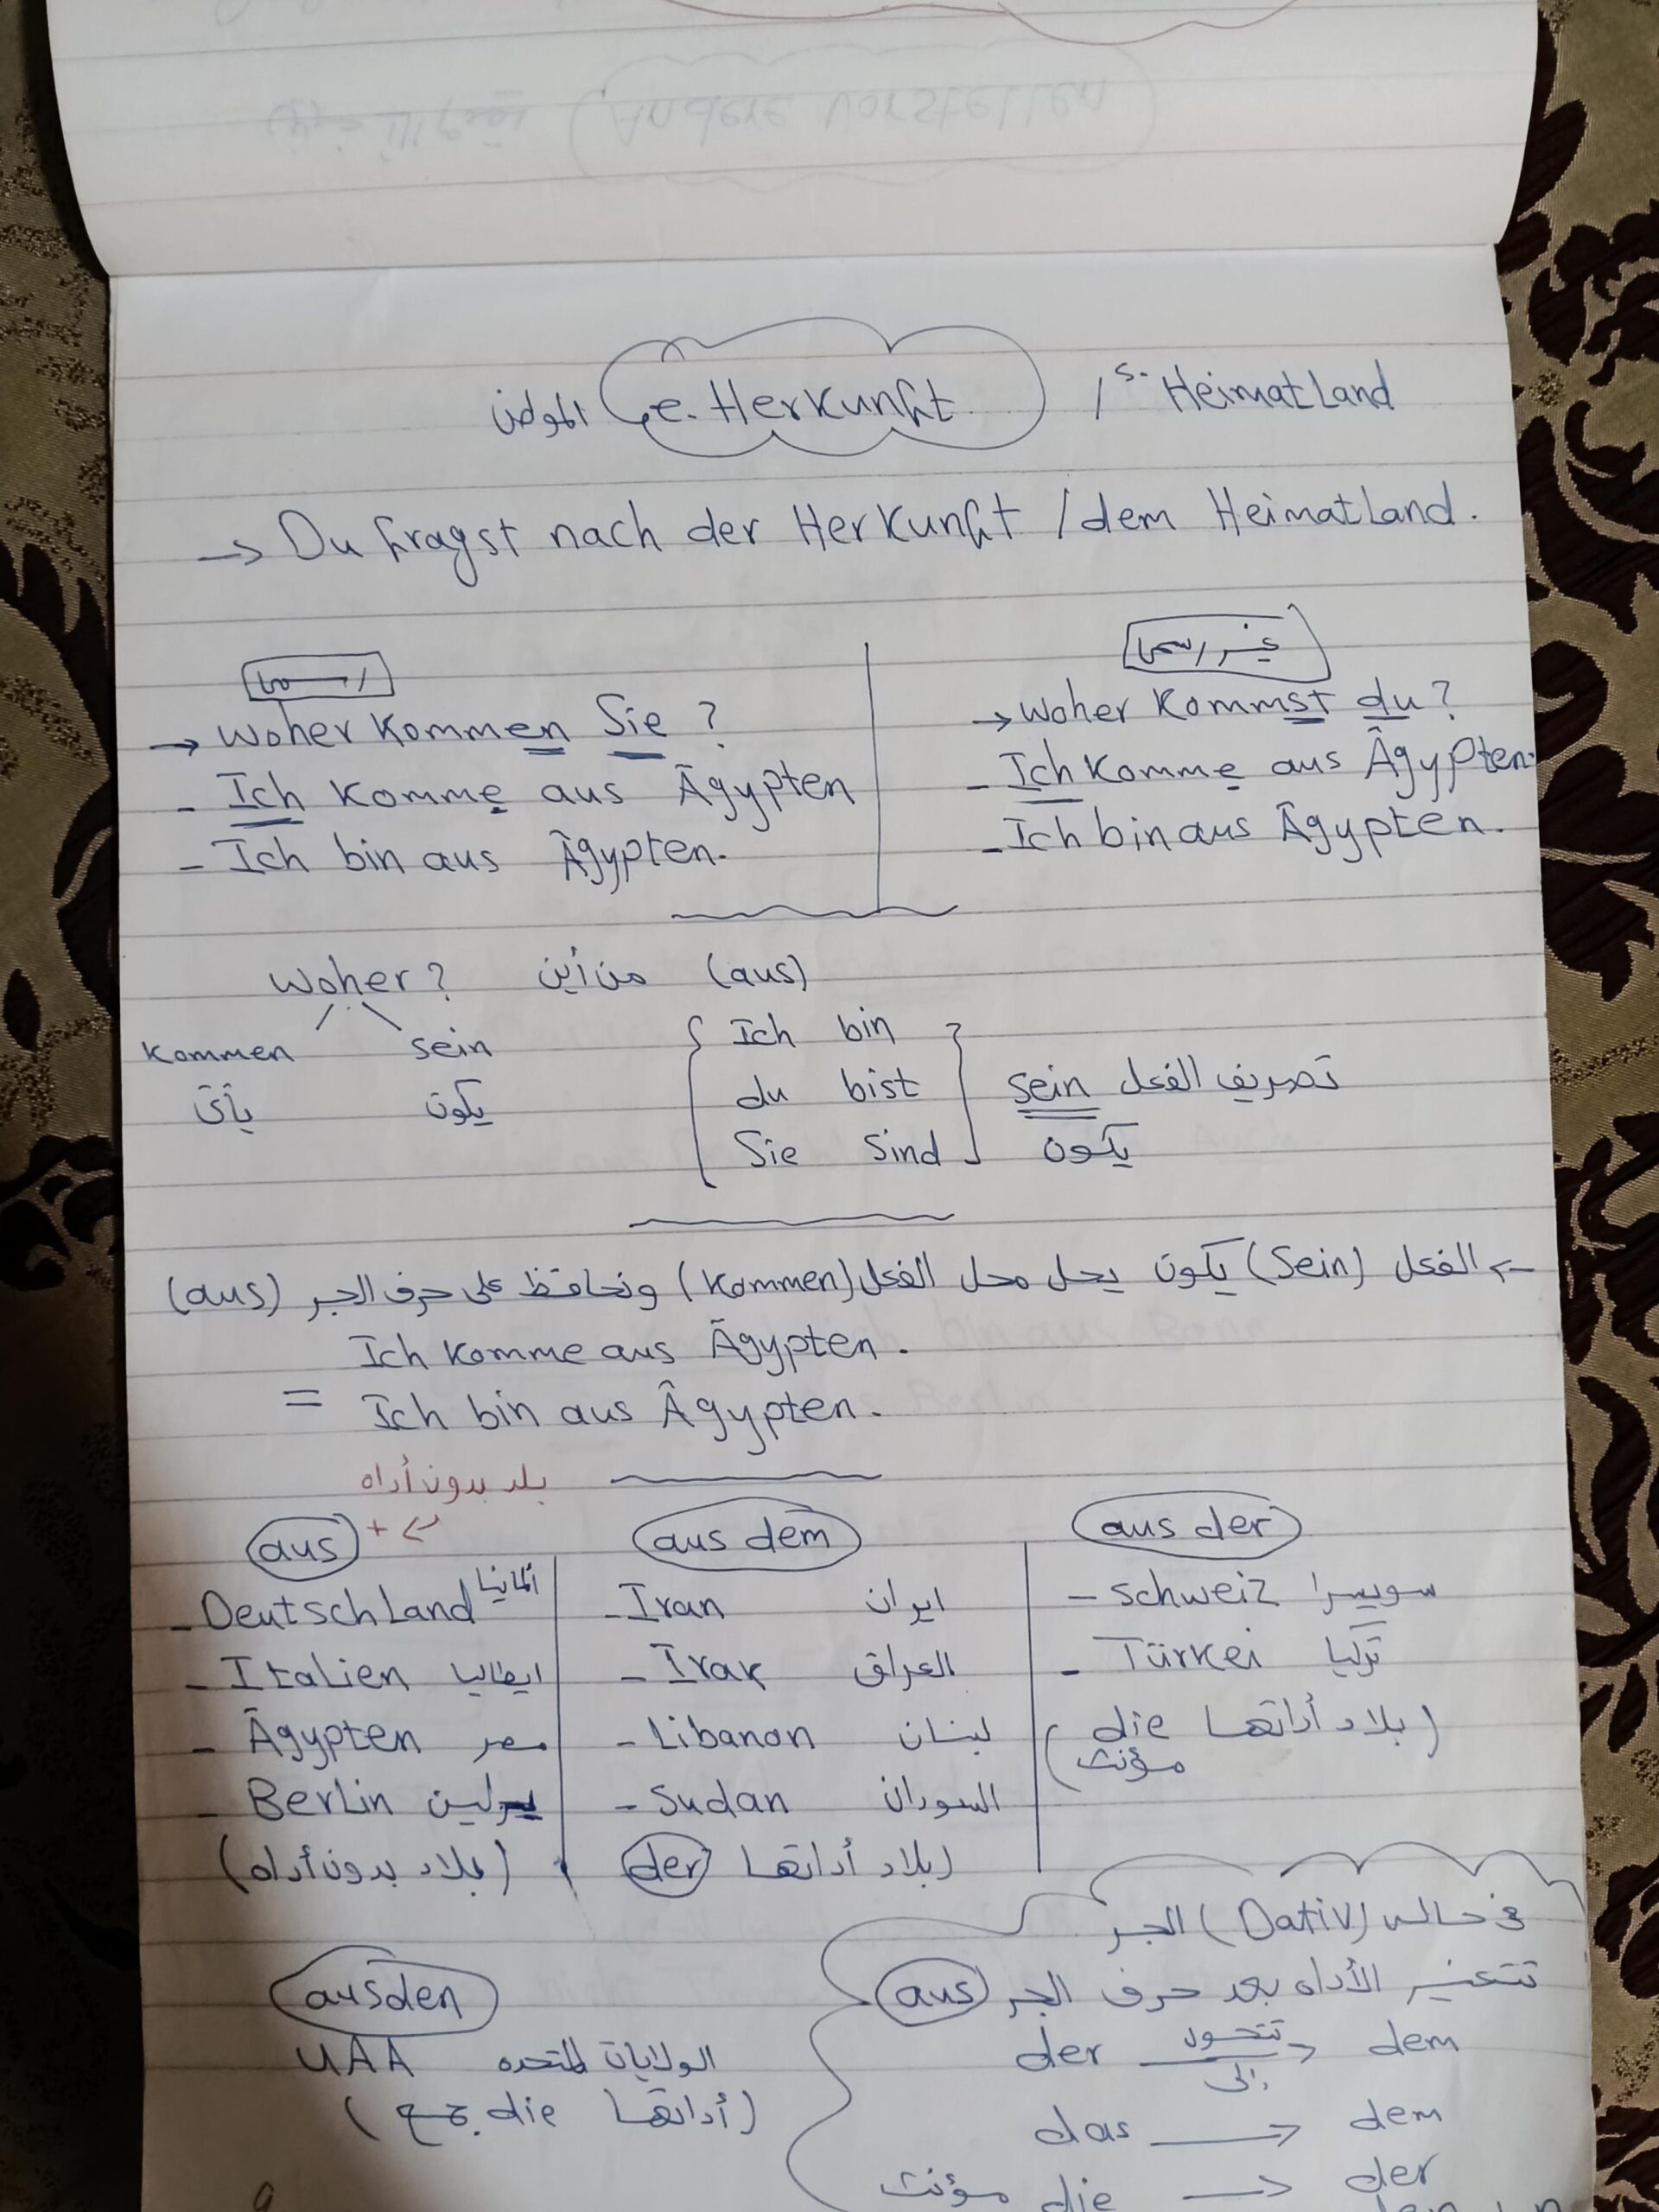 الموطن e. Herkunft / s. Heimatland
→ Du fragst nach der Herkunft / dem Heimatland.
رسمى
→ Woher kommen Sie ?
- Ich komme aus Ägypten
- Ich bin aus Ägypten.
غير رسمى
→ Woher kommst du ?
- Ich komme aus Ägypten.
- Ich bin aus Ägypten.
Woher ? من أين (aus)
kommen sein
يأتى يكون
Ich bin
du bist
Sie sind
تصريف الفعل sein
يكون
← الفعل (Sein) يكون يحل محل الفعل (kommen) ونحافظ على حرف الجر (aus)
Ich komme aus Ägypten .
= Ich bin aus Ägypten .
بلد بدون أداه
aus + ←
- Deutschland ألمانيا
- Italien ايطاليا
- Ägypten مصر
- Berlin برلين
(بلاد بدون أداه)
aus dem
- Iran ايران
- Irak العراق
- Libanon لبنان
- Sudan السودان
(بلاد أداتها der
aus der
- Schweiz سويسرا
- Türkei تركيا
(بلاد أداتها die
مؤنث)
aus den
UAA الولايات المتحده
(أداتها die جمع)
فى حاله (Dativ) الجر
تتغير الأداه بعد حرف الجر aus
der تتحول إلى → dem
das → dem
مؤنث die → der